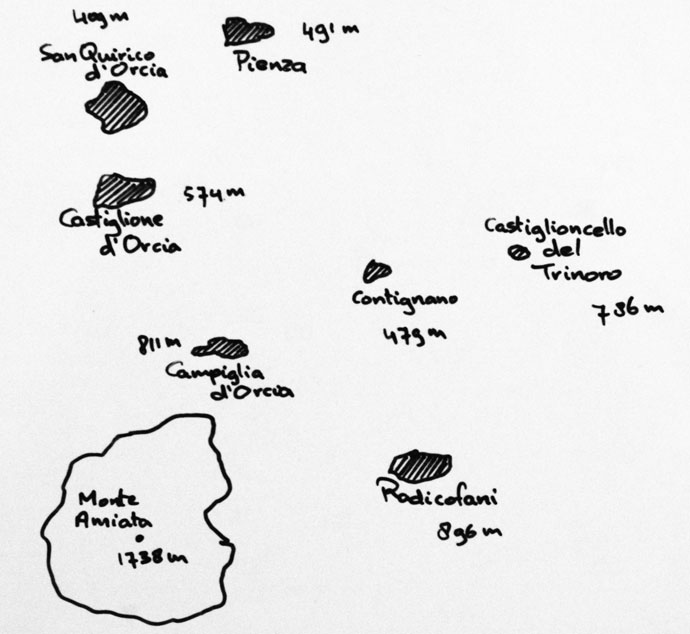 409 m
San Quirico
d'Orcia
491 m
Pienza
574 m
Castiglione
d'Orcia
Castiglioncello
del
Trinoro
736 m
Contignano
479 m
811 m
Campiglia
d'Orcia
Radicofani
896 m
Monte
Amiata
1738 m